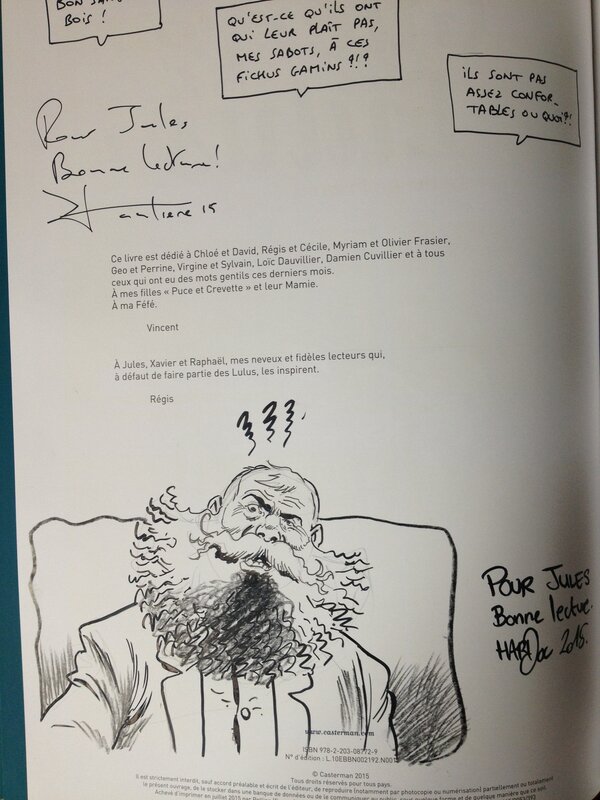 BON SANG
BOIS !
QU'EST-CE QU'ILS ONT
QUI LEUR PLAÎT PAS,
MES SABOTS, À CES
FICHUS GAMINS ?!?
ILS SONT PAS
ASSEZ CONFOR_
TABLES OU QUOI?!
Pour Jules
Bonne lecture!
Hautiere 15
Ce livre est dédié à Chloé et David, Régis et Cécile, Myriam et Olivier Frasier,
Geo et Perrine, Virgine et Sylvain, Loïc Dauvillier, Damien Cuvillier et à tous
ceux qui ont eu des mots gentils ces derniers mois.
À mes filles « Puce et Crevette » et leur Mamie.
À ma Féfé.
Vincent
À Jules, Xavier et Raphaël, mes neveux et fidèles lecteurs qui,
à défaut de faire partie des Lulus, les inspirent.
Régis
POUR JULES
Bonne lecture.
HARDoc 2015.
www.casterman.com
ISBN 978-2-203-08772-9
N° d'édition : L.10EBBN002192.N001
© Casterman 2015
Tous droits réservés pour tous pays.
Il est strictement interdit, sauf accord préalable et écrit de l'éditeur, de reproduire (notamment par photocopie ou numérisation) partiellement ou totalement
le présent ouvrage, de le stocker dans une banque de données ou de le communiquer au public, sous quelque forme et de quelque manière que ce soit.
Achevé d'imprimer en juillet 2015 par